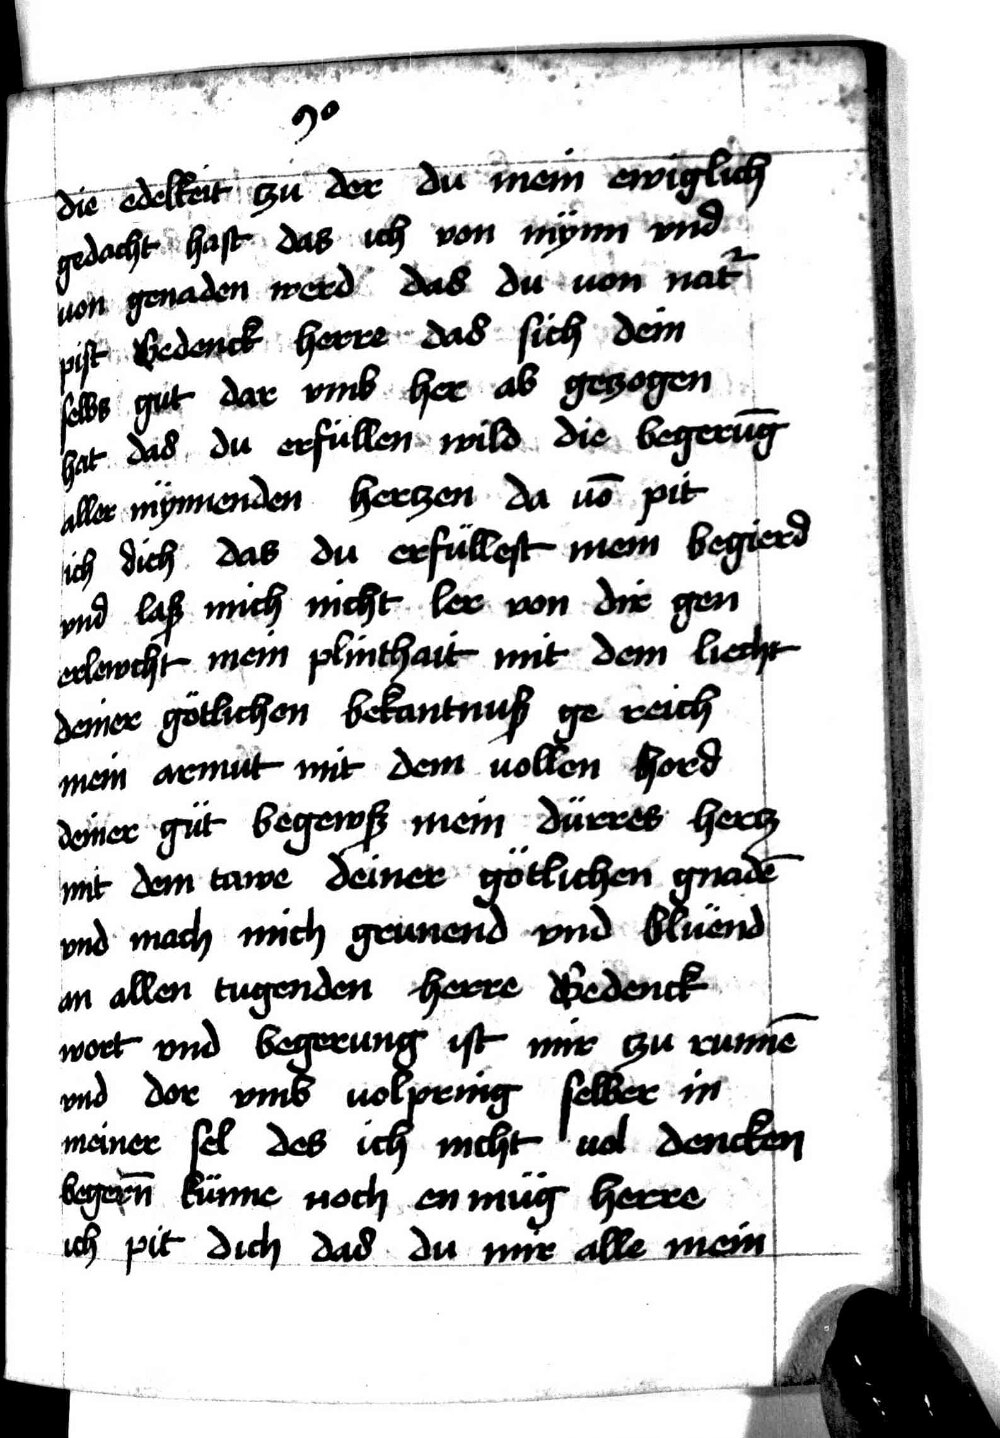 90
die edelkeit zü der du mein ewiglich
gedacht hast das ich von mÿnn vnd
von genaden werd das du von nat²
pist Gedenck herre das sich dein
selbs gut dar vmb her ab gezogen
hat das du erfüllen wild die begerūg
aller mÿnnenden hertzen da vō pit
ich dich das du erfüllest mein begierd
vnd laß mich nicht ler von dir gen
erlewcht mein plinthait mit dem liecht
deiner götlichen bekantnuß ge reich
mein armut mit dem vollen hord
deiner güt begewß mein dürres hertz
mit dem tawe deiner götlichen gnadē
vnd mach mich grunend vnd blüend
an allen tugenden herre Gedenck
wort vnd begerung ist mir zu runnē
vnd dor vmb volpring selber in
meiner sel des ich nicht vol dencken
begern̄ künne noch en müg herre
ich pit dich das du mir alle mein